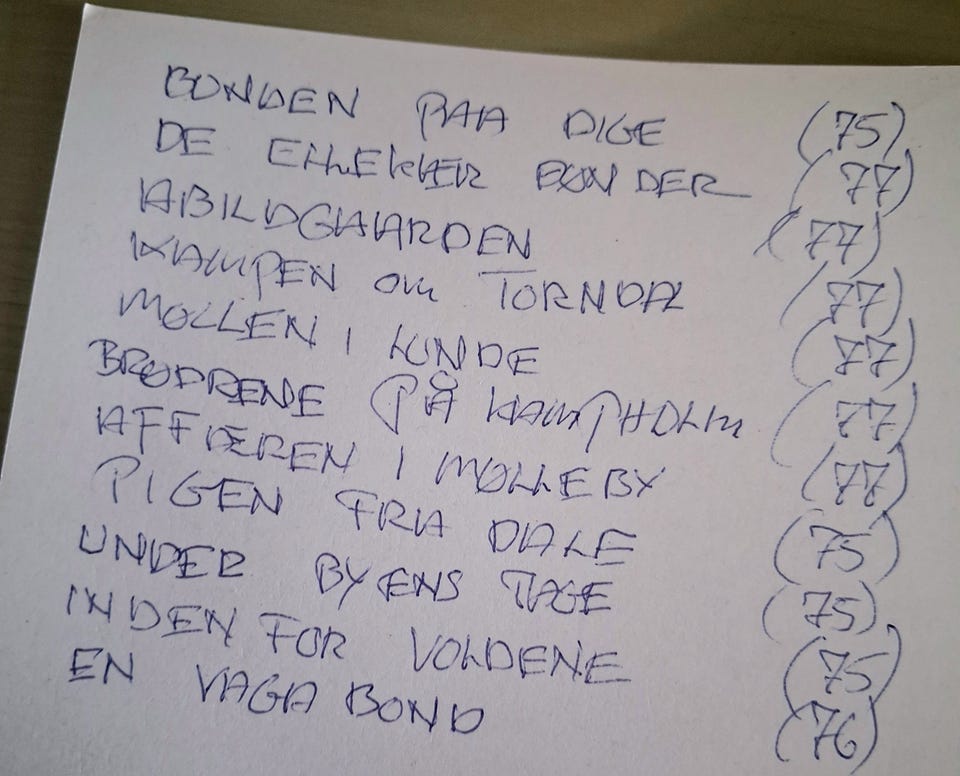 BONDEN PAA DIGE (75)
DE ELLEKÆR BØNDER (77)
ABILDGAARDEN (77)
KAMPEN OM TORNDAL (77)
MØLLEN I LUNDE (77)
BRØDRENE PÅ KAMPHOLM (77)
AFFÆREN I MØLLEBY (77)
PIGEN FRA DALE (75)
UNDER BYENS TAGE (75)
INDEN FOR VOLDENE (75)
EN VAGABOND (76)